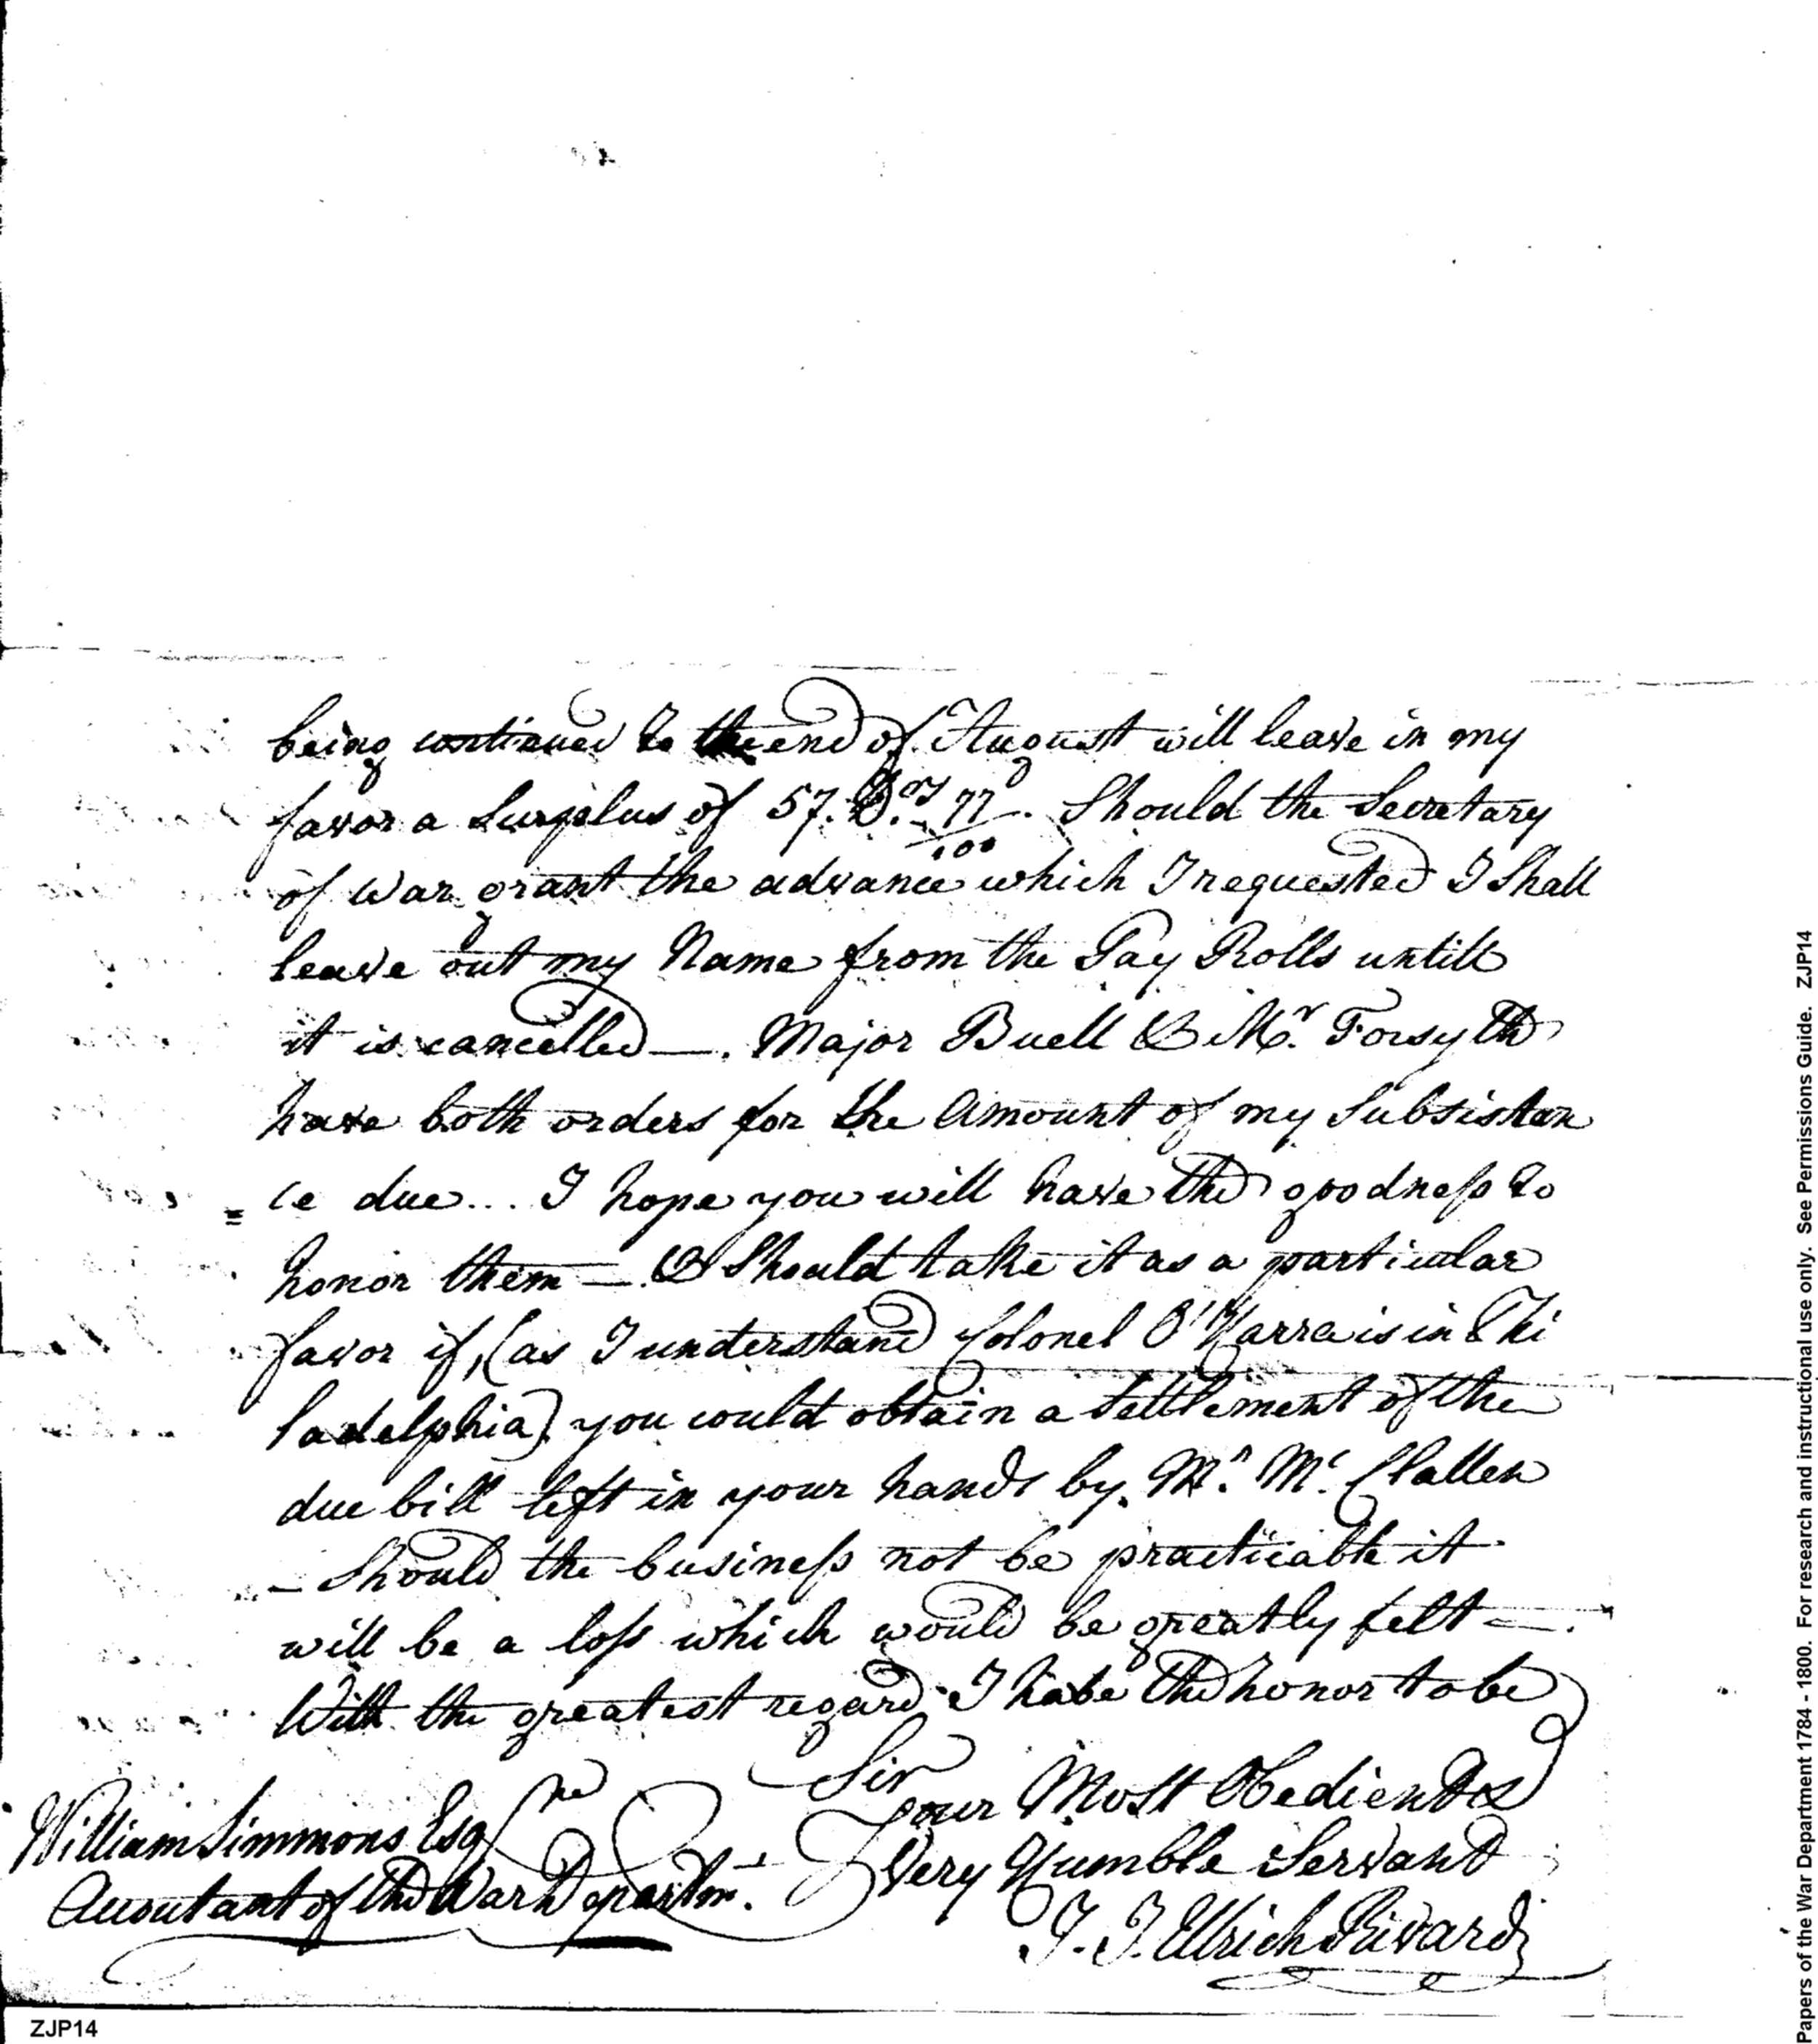 being continued to the end of August will leave in my
favor a Surplus of 57. Drs 77/100. Should the Secretary
of War grant the advance which I requested I Shall
leave out my Name from the Pay Rolls untill
it is cancelled —. Major Buell & Mr. Forsyth
have both orders for the Amount of my Subsistan
= ce due... I hope you will have the goodness to
honor them — & Should take it as a particular
favor if, (as I understand Colonel O'Harra is in Phi
ladelphia) you could obtain a Settlement of the
due bill left in your hands by Mr. Mc. Clallen
— Should the business not be practicable it
will be a loss which would be greatly felt —.
With the greatest regard I have the honor to be
Sir
Your Most Obedient &
Very Humble Servant
J. J. Ulrich Rivardi
William Simmons Esqre
Accoutant of the War Departmt.
ZJP14
Papers of the War Department 1784 - 1800. For research and instructional use only. See Permissions Guide. ZJP14